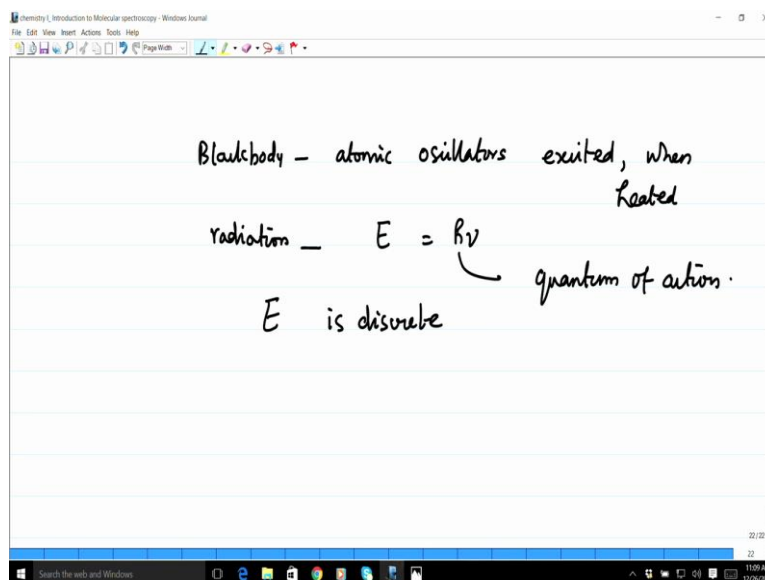 chemistry I_ Introduction to Molecular spectroscopy - Windows Journal
File Edit View Insert Actions Tools Help
Page Width
Blackbody – atomic oscillators excited, when
heated
radiation – E = hν
quantum of action.
E is discrete
22/22
22
Search the web and Windows
11:09 A